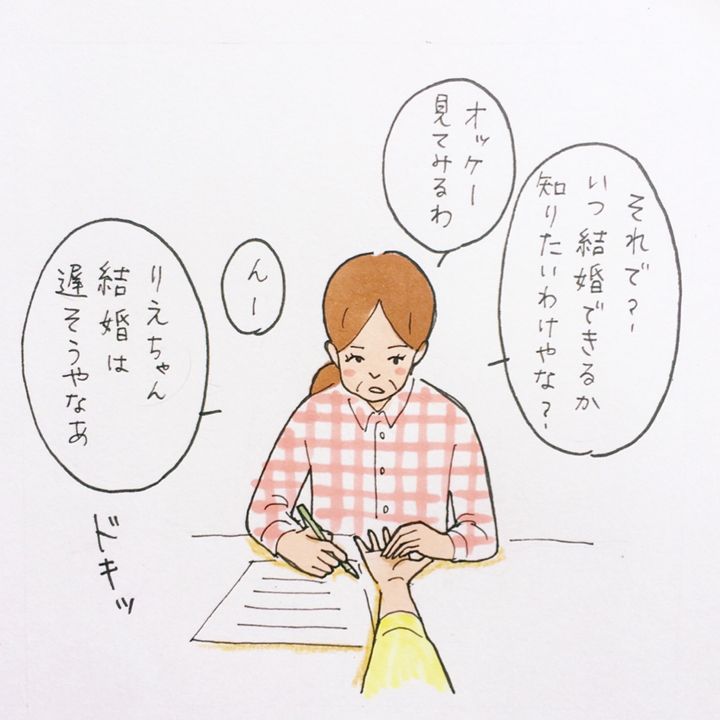 それで？
いつ結婚できるか
知りたいわけやな？
オッケー
見てみるわ
んー
りえちゃん
結婚は
遅そうやなあ
ドキッ